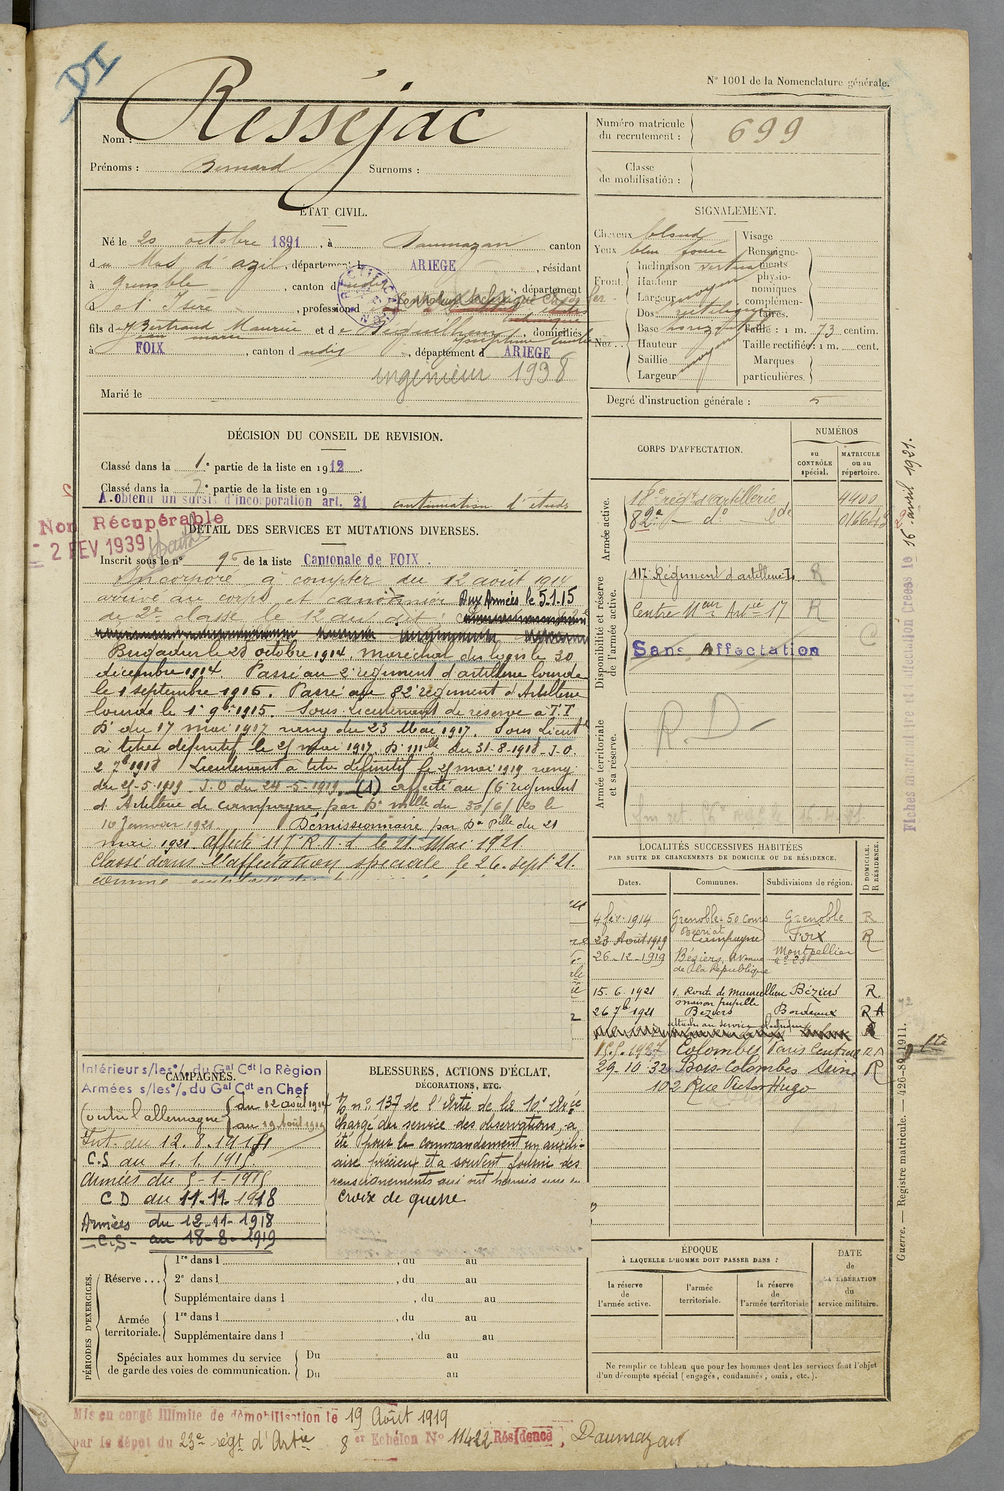 DI
N° 1001 de la Nomenclature générale.
Nom : Resséjac
Prénoms : Bernard Surnoms :
Numéro matricule du recrutement : 699
Classe de mobilisation :
ÉTAT CIVIL.
Né le 20 octobre 1891, à Daumazan canton
du Mas d'azil, département ARIEGE, résidant
à Grenoble, canton d udit, département
d e l'Isère, profession d
fils de Bertrand Maurice et de domiciliés
à FOIX, canton d udit, département d ARIEGE
ingénieur 1938
Marié le
SIGNALEMENT.
Cheveux blond
Yeux bleu foncé
Front. Inclinaison verticale
Hauteur
Largeur moyen
Nez. Dos rectiligne
Base horizontal
Hauteur
Saillie moyen
Largeur
Visage
Renseignements physionomiques complémentaires.
Taille : 1 m. 73 centim.
Taille rectifiée : 1 m. cent.
Marques particulières.
Degré d'instruction générale : 5
DÉCISION DU CONSEIL DE REVISION.
Classé dans la 1e partie de la liste en 1912
Classé dans la 2e partie de la liste en 19
A obtenu un sursis d'incorporation art. 21 continuation d'études
Non Récupérable
- 2 FEV 1939
DÉTAIL DES SERVICES ET MUTATIONS DIVERSES.
Inscrit sous le n° 96 de la liste Cantonale de FOIX.
Incorporé à compter du 12 août 1914
arrivé au corps et canonnier Aux Armées le 5.1.15
de 2e classe le 12 au dit
Brigadier le 28 octobre 1914, maréchal des logis le 30
décembre 1914 Passé au 2e régiment d'artillerie lourde
le 1 septembre 1915. Passé au 82e régiment d'Artillerie
lourde le 1er 9bre 1915. Sous Lieutenant de réserve à T.T
Dn du 17 mai 1917 rang du 23 Mai 1917. Sous Lieut
à titre définitif le 25 mai 1917 Dn mlle du 31-8-1918 J.O.
2 7bre 1918 Lieutenant à titre définitif le 25 mai 1919 rang
du 25-5-1919 J.O du 24-5-1919 (1) affecté au 16e régiment
d'Artillerie de campagne par Dn mlle du 30/6/20 le
10 Janvier 1921 Démissionnaire par Dn Plle du 21
mai 1921 affecté 117e R.A.L le 21 Mai 1921
Classé dans l'affectation spéciale le 26 Sept 21.
comme
CORPS D'AFFECTATION.
NUMÉROS
au CONTRÔLE spécial.
MATRICULE ou au répertoire.
Armée active.
18e régt d'artillerie 4400
82e — do — lde
Disponibilité et réserve de l'armée active.
117e Régiment d'artillerie Lde R
Centre Meur Artie 17 R
Sans Affectation
C
Armée territoriale et sa réserve.
R D
Fiches matriculaire et d'affectation créées le 16 avril 1921.
LOCALITÉS SUCCESSIVES HABITÉES
PAR SUITE DE CHANGEMENTS DE DOMICILE OU DE RÉSIDENCE.
Dates. Communes. Subdivisions de région. D DOMICILE. R RÉSIDENCE.
4 fév. 1914 Grenoble 50 cours Berriat Grenoble R
23 Août 1919 Campagne Foix R
26-12-1919 Béziers, Avenue de la République Montpellier
15.6.1921 1, Route de Béziers R
26 7bre 1921 Béziers Bordeaux R A
Colombes Paris Central R
29.10.32 Bois Colombes Seine R
102 Rue Victor Hugo
Intérieur s/les% du Gal Cdt la Région
CAMPAGNES.
Armées s/les% du Gal Cdt en Chef
Contre l'allemagne du 12 août 1914 au 19 Août 1919
Int. du 12.8.1914
C.S au 4.1.1915.
Armées du 5-1-1915
C D au 11-11-1918
Armées du 12-11-1918
C.S. au 18-8-1919
BLESSURES, ACTIONS D'ÉCLAT,
DÉCORATIONS, ETC.
n° 137 de l'Artie de la 10e
Chargé du service des observations, a
été pour le commandement un auxili-
aire précieux et a souvent fourni des
renseignements qui ont permis une
Croix de guerre
PÉRIODES D'EXERCICES.
Réserve ... 1re dans l , du au
2e dans l , du au
Supplémentaire dans l , du au
Armée territoriale. 1re dans l , du au
Supplémentaire dans l , du au
Spéciales aux hommes du service de garde des voies de communication. Du au
Du au
ÉPOQUE
À LAQUELLE L'HOMME DOIT PASSER DANS :
la réserve de l'armée active.
l'armée territoriale.
la réserve de l'armée territoriale
DATE de LA LIBÉRATION du service militaire.
Ne remplir ce tableau que pour les hommes dont les services font l'objet d'un décompte spécial (engagés, condamnés, omis, etc.).
Guerre. — Registre matricule. — 426-89-1911.
Mis en congé illimité de démobilisation le 19 Août 1919
par le dépôt du 23e régt d'Artie 8 er Echelon N° 11422 Résidence, Daumazan